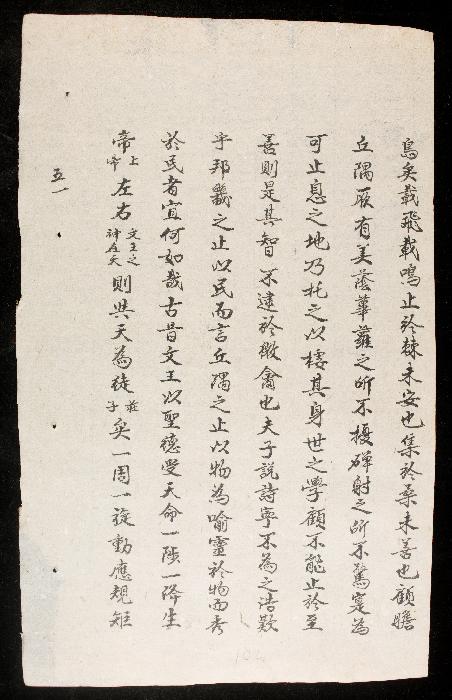 鳥矣載飛載鳴止於棘未安也集於桑未善也顧瞻
丘隅厥有美蔭華蘿之所不擾磾射之所不驚寔為
可止息之地乃托之以棲其身世之學顧不能止於至
善則是其智不逮於微禽也夫子說詩寧不為之浩歎
乎邦畿之止以民而言丘隅之止以物為喻靈於物而秀
於民者宜何如哉古昔文王以聖德受天命一陟一降生
帝上帝左右文王之神在天則與天為徒莊子矣一周一旋動應規矩
五一